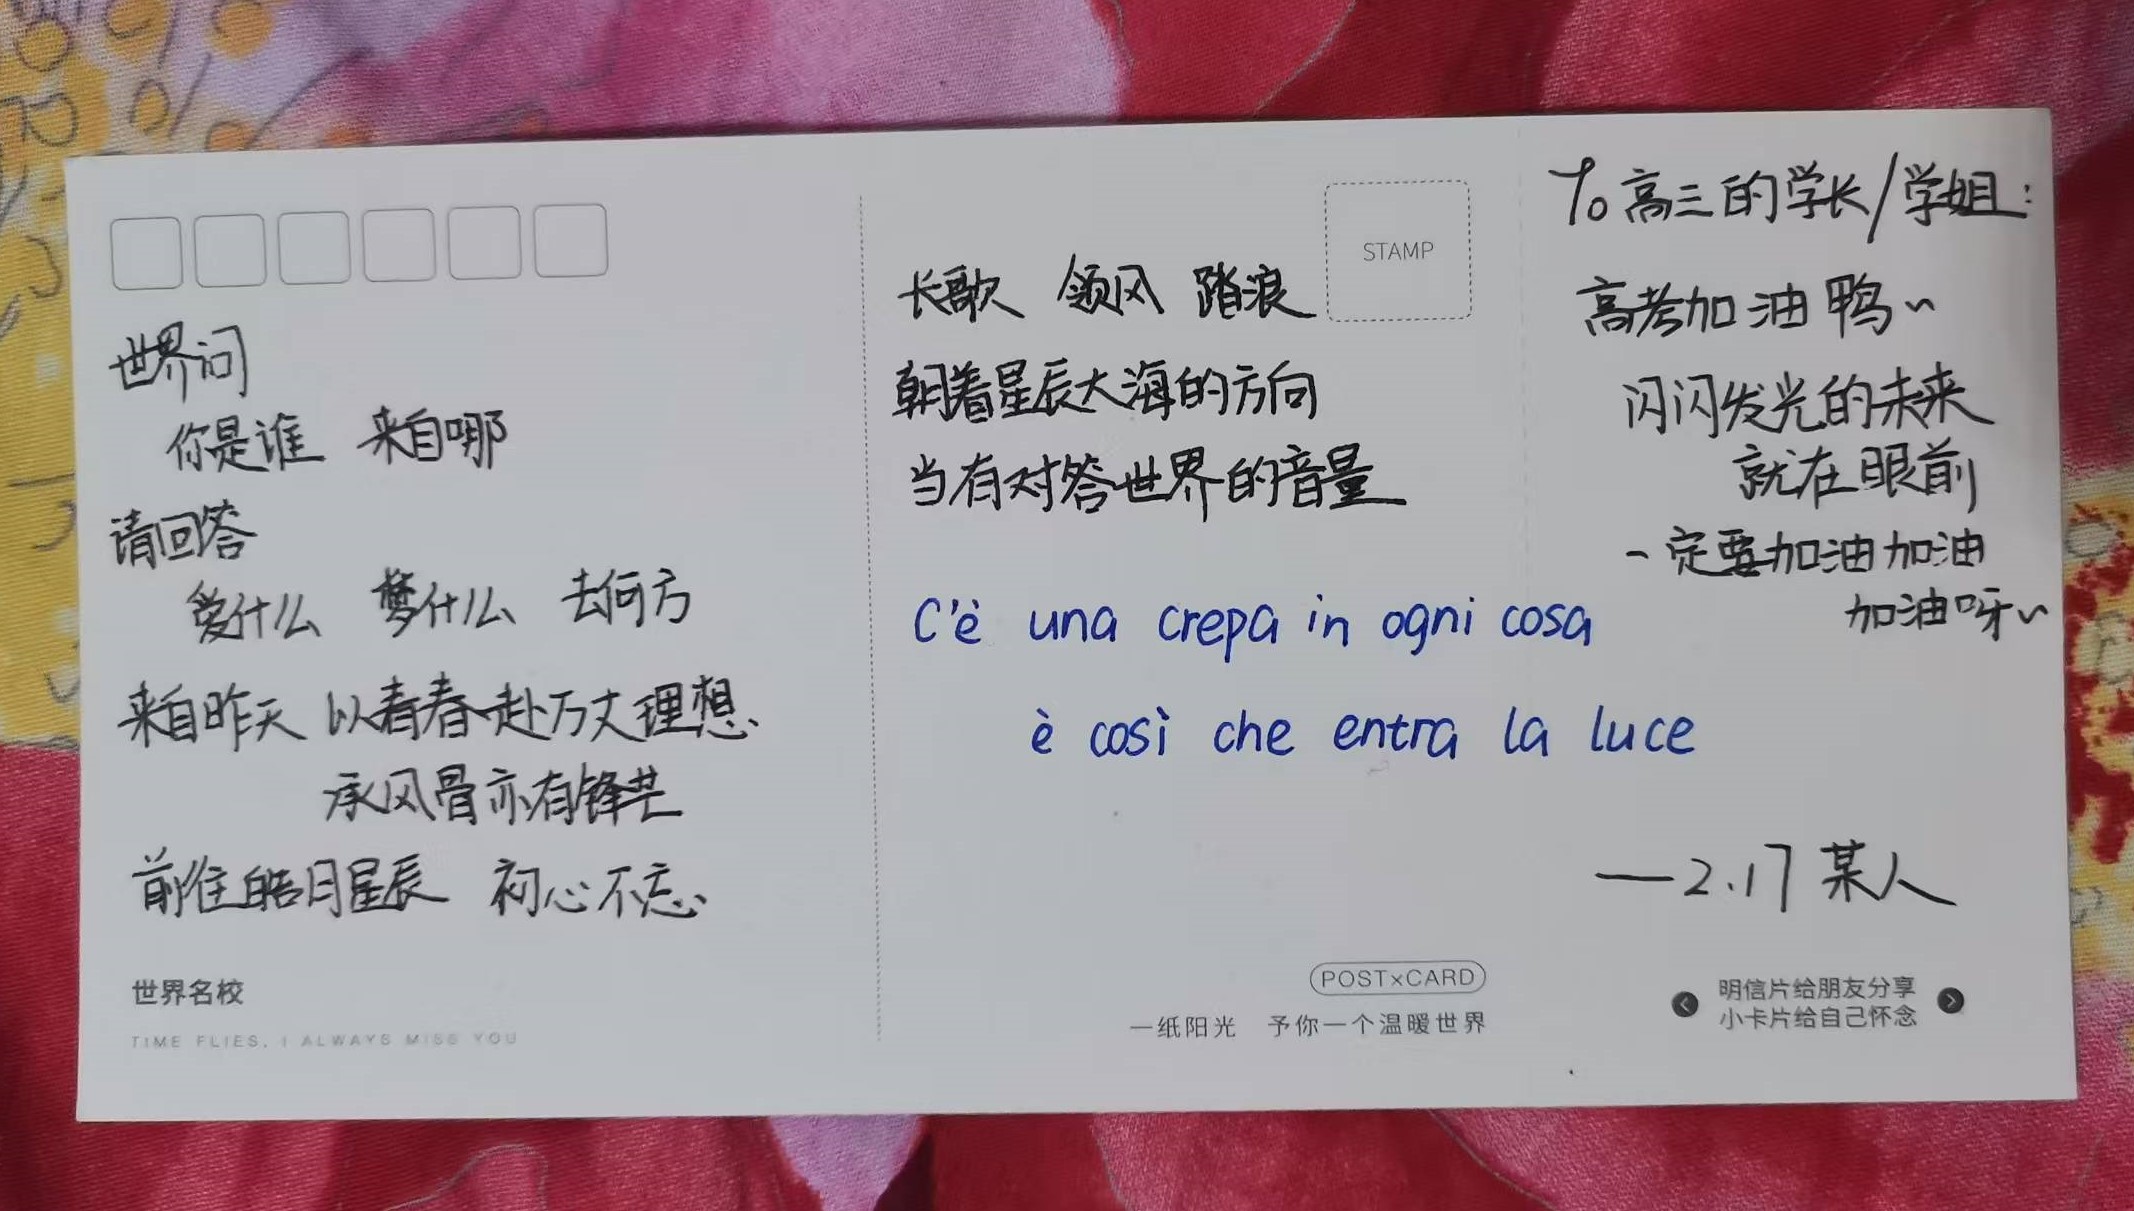 世界问
你是谁 来自哪
请回答
爱什么 梦什么 去何方
来自昨天 以青春赴万丈理想
承风骨亦有锋芒
前往皓月星辰 初心不忘
世界名校
TIME FLIES, I ALWAYS MISS YOU
STAMP
长歌 领风 踏浪
朝着星辰大海的方向
当有对答世界的音量
C'è una crepa in ogni cosa
è così che entra la luce
To 高三的学长/学姐:
高考加油鸭~
闪闪发光的未来
就在眼前
一定要加油加油
加油呀~
——2.17 某人
POST×CARD
一纸阳光 予你一个温暖世界
明信片给朋友分享
小卡片给自己怀念